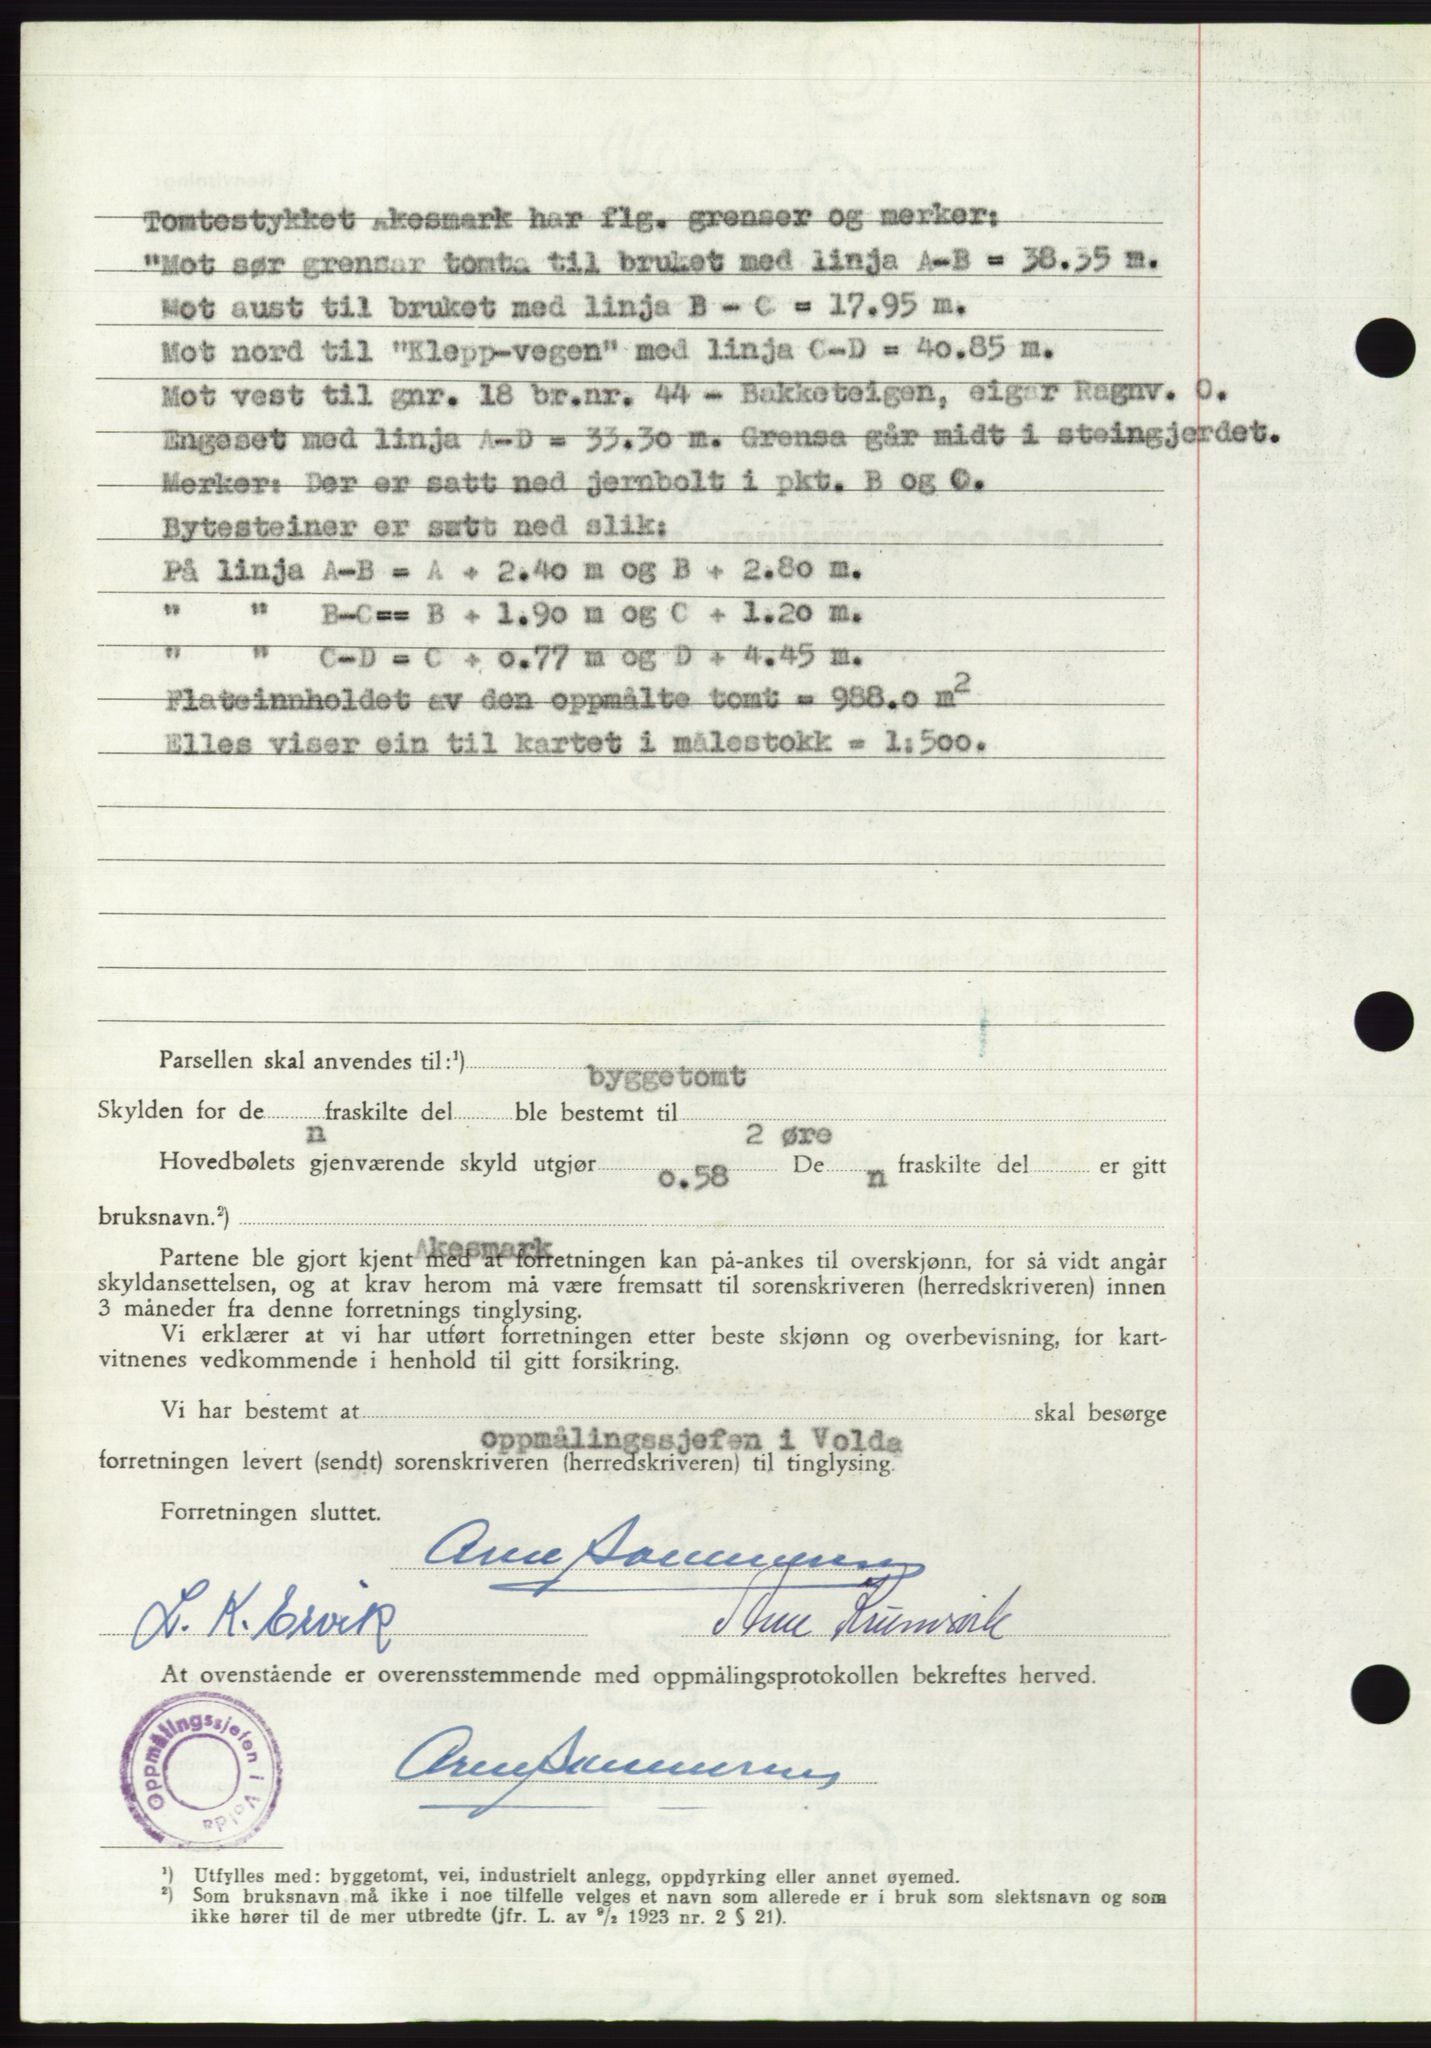 Tomtestykket Åkesmark har flg. grenser og merker:
"Mot sør grensar tomta til bruket med linja A-B = 38.35 m.
Mot aust til bruket med linja B - C = 17.95 m.
Mot nord til "Klepp-vegen" med linja C-D = 40.85 m.
Mot vest til gnr. 18 br.nr. 44 - Bakketeigen, eigar Ragnv. O.
Engeset med linja A-D = 33.30 m. Grensa går midt i steingjerdet.
Merker: Der er satt ned jernbolt i pkt. B og C.
Bytesteiner er satt ned slik:
På linja A-B = A + 2.40 m og B + 2.80 m.
" " B-C== B + 1.90 m og C + 1.20 m.
" " C-D = C + 0.77 m og D + 4.45 m.
Flateinnholdet av den oppmålte tomt = 988.0 m2
Elles viser ein til kartet i målestokk = 1:500.
Parsellen skal anvendes til:¹) byggetomt
Skylden for de n fraskilte del ble bestemt til 2 øre
Hovedbølets gjenværende skyld utgjør 0.58 De n fraskilte del er gitt
bruksnavn.²) Åkesmark
Partene ble gjort kjent med at forretningen kan på-ankes til overskjønn, for så vidt angår
skyldansettelsen, og at krav herom må være fremsatt til sorenskriveren (herredskriveren) innen
3 måneder fra denne forretnings tinglysing.
Vi erklærer at vi har utført forretningen etter beste skjønn og overbevisning, for kart-
vitnenes vedkommende i henhold til gitt forsikring.
Vi har bestemt at oppmålingssjefen i Volda skal besørge
forretningen levert (sendt) sorenskriveren (herredskriveren) til tinglysing.
Forretningen sluttet.
Arne
L. K. Ervik Arne Krumsvik
At ovenstående er overensstemmende med oppmålingsprotokollen bekreftes herved.
Oppmålingssjefen i Volda
Arne
¹) Utfylles med: byggetomt, vei, industrielt anlegg, oppdyrking eller annet øyemed.
²) Som bruksnavn må ikke i noe tilfelle velges et navn som allerede er i bruk som slektsnavn og som
ikke hører til de mer utbredte (jfr. L. av 9/2 1923 nr. 2 § 21).